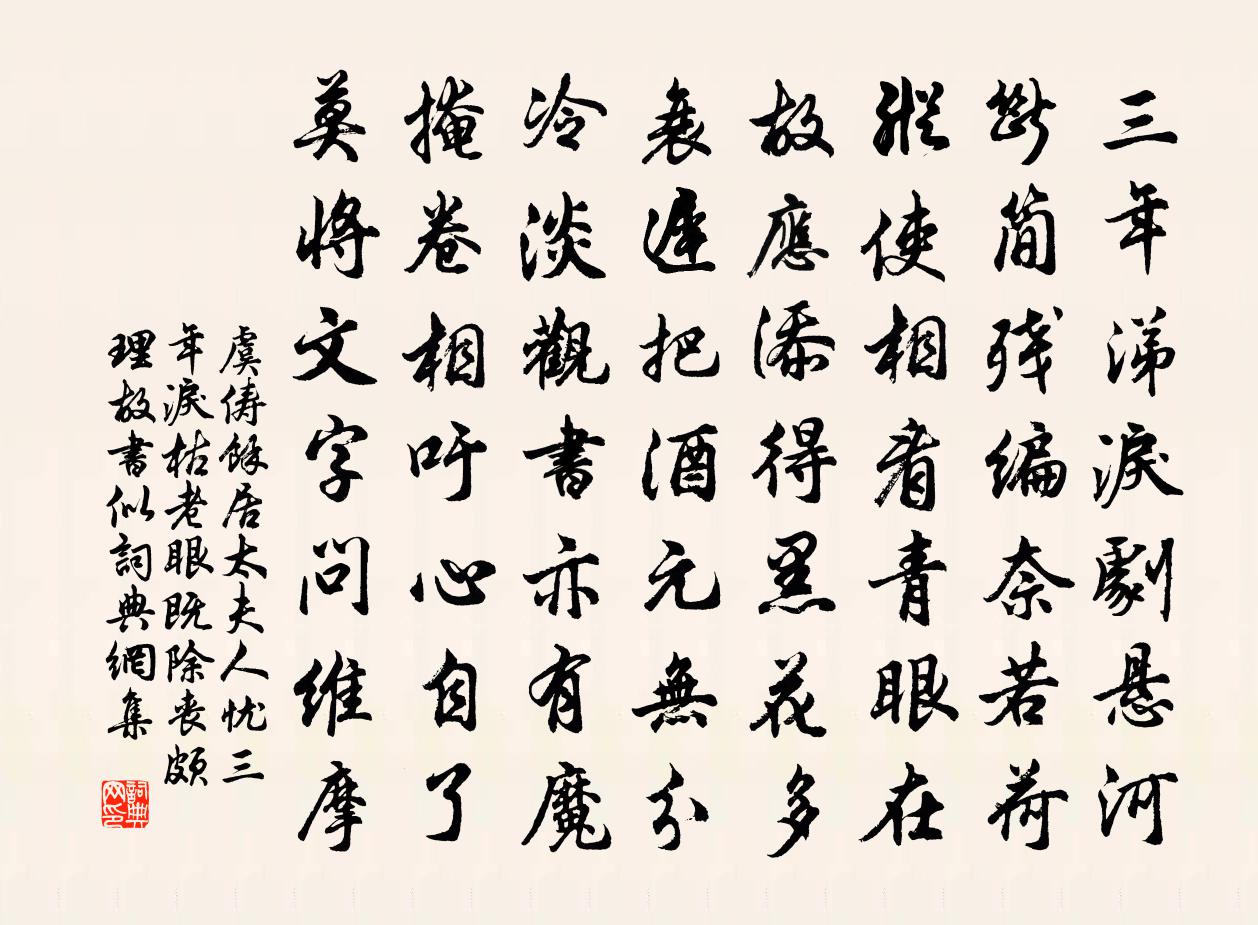 三年涕淚劇悬河
斷简残编奈若荷
縱使相看青眼在
故應添得黑花多
衰遲把酒元無分
冷淡觀書亦有魔
掩卷相吁心自了
莫將文字問維摩
虞俦餘居太夫人忧三
年淚枯老眼既除丧頗
理故書似詞典網集
詞典网印